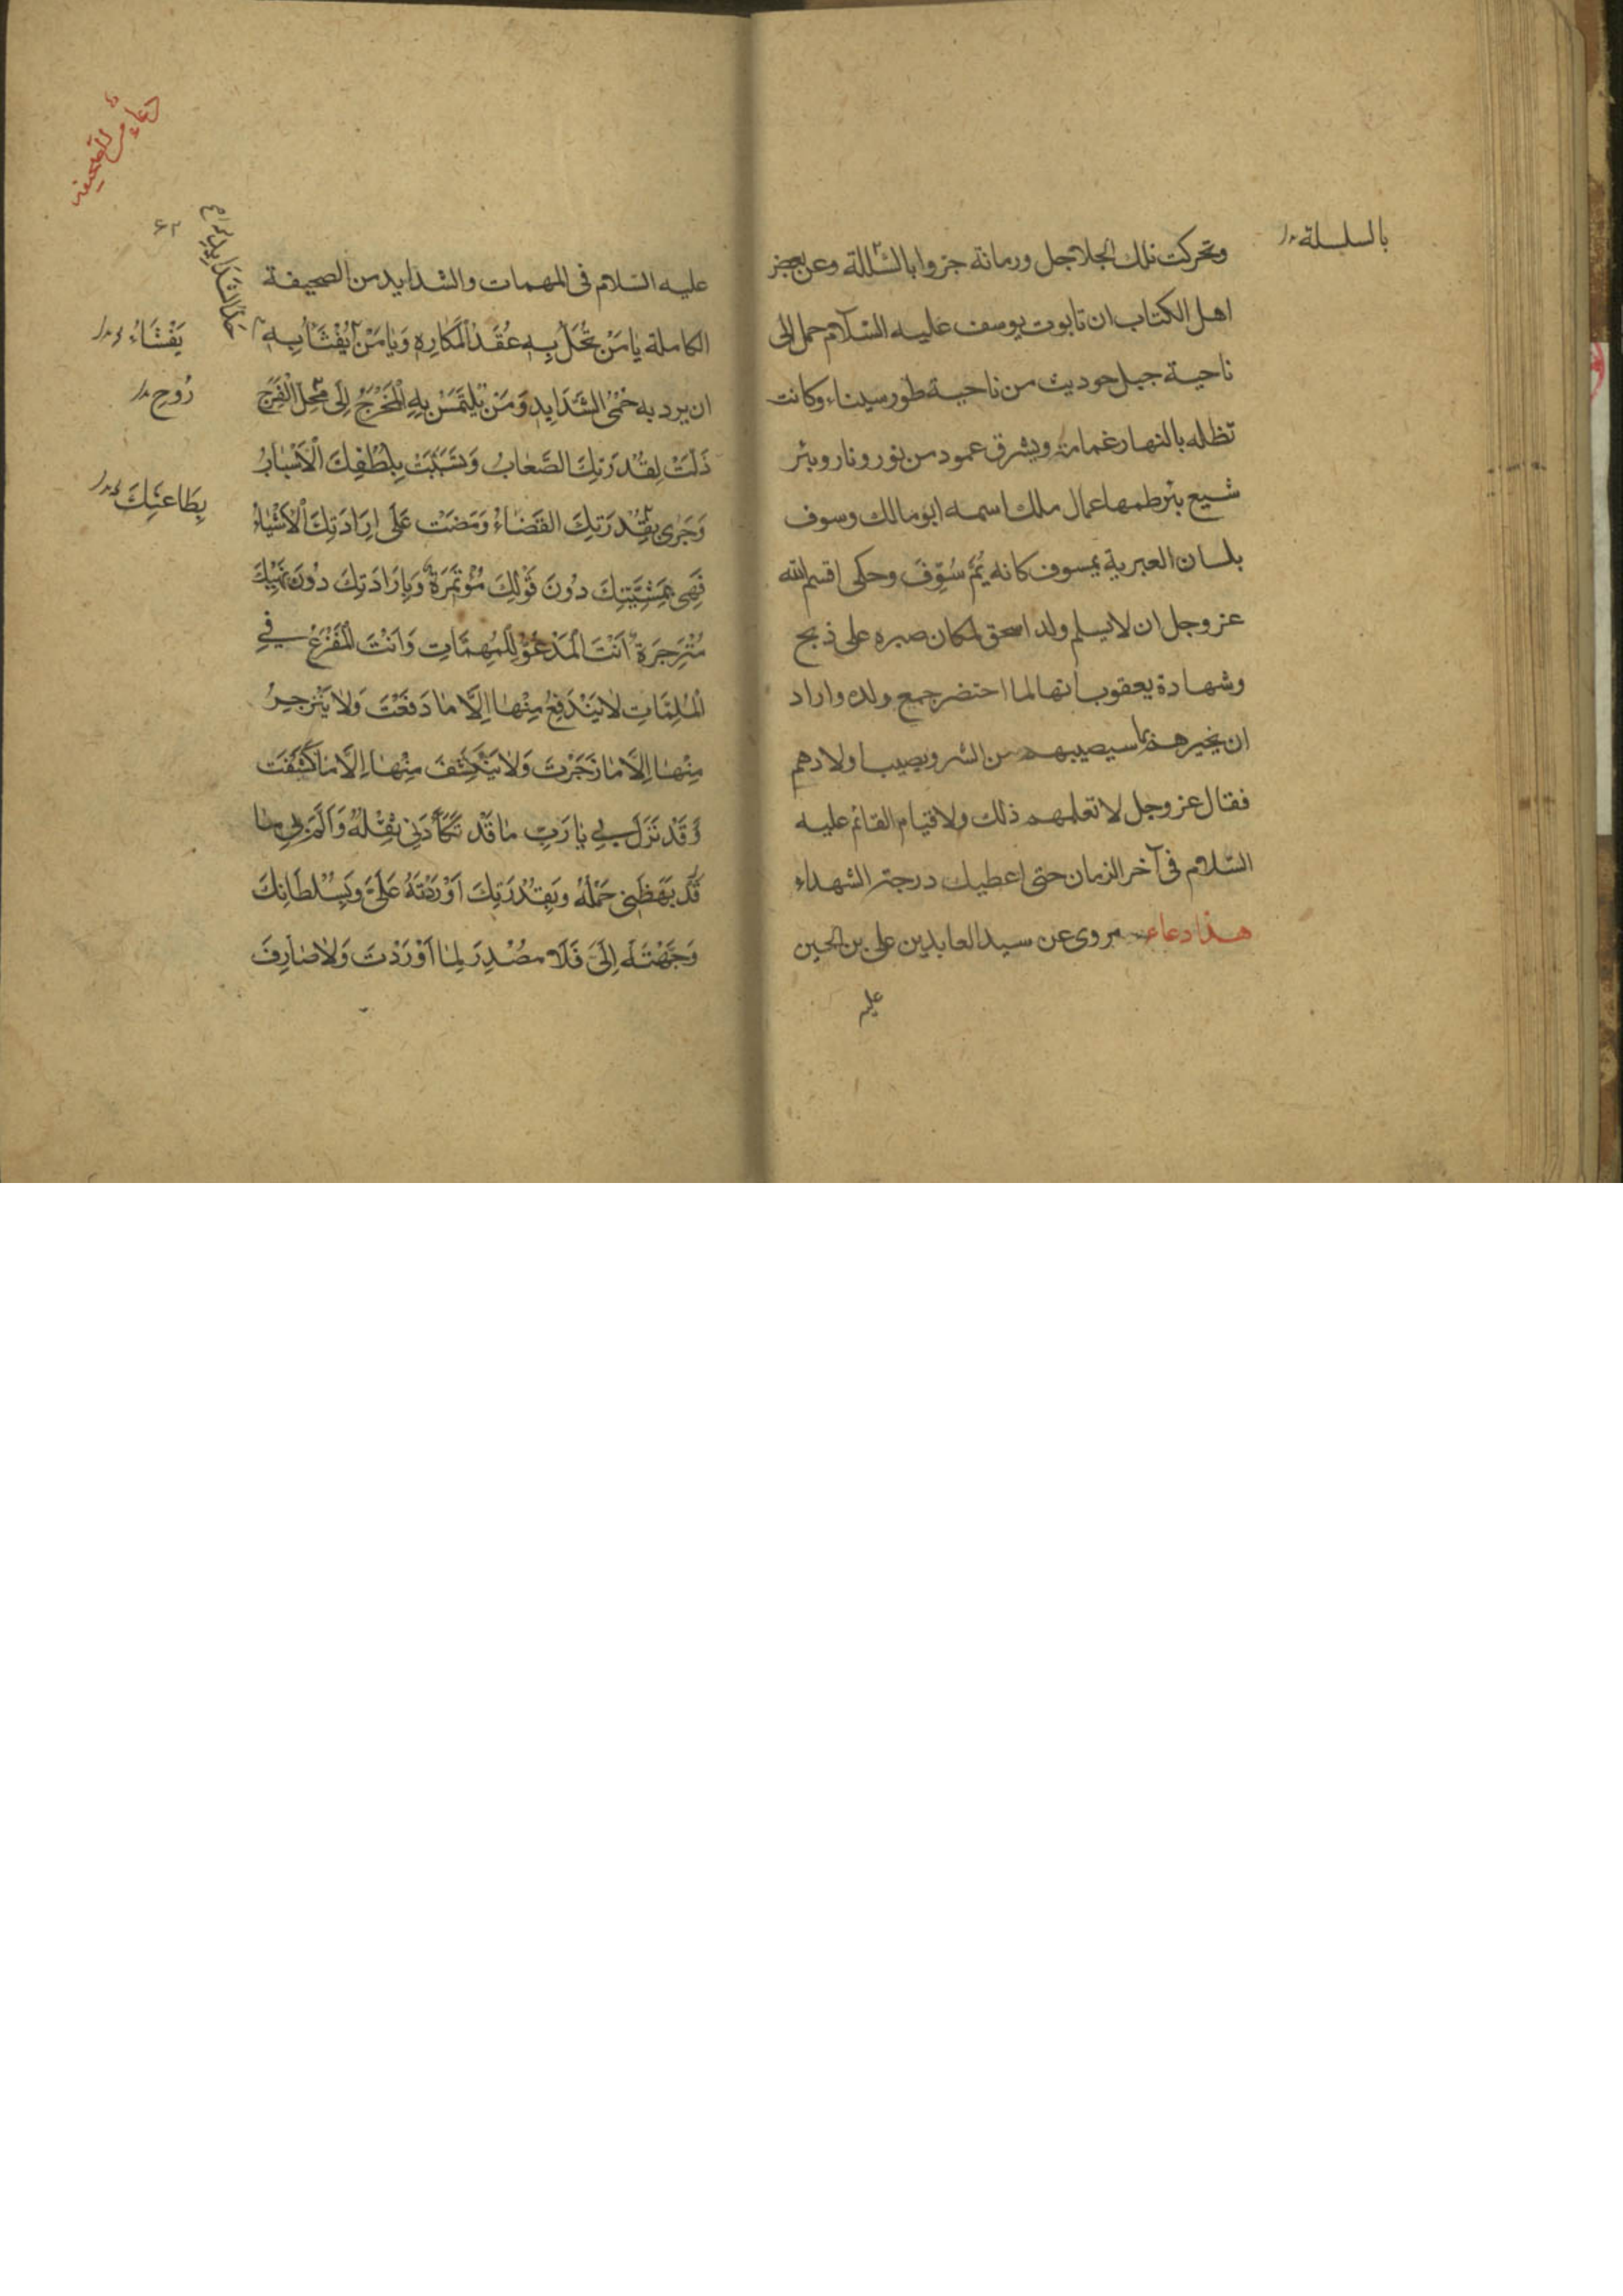 بالسلسلة
وتحركت تلك الجلاجل ورمانة جزوا بالشللة وعن بعض
اهل الكتاب ان تابوت يوسف عليه السّلام حمل الى
ناحية جبل حوديث من ناحية طور سيناء وكانت
تظله بالنهار غمامة ويشرق عمود من نور ونار وبئر
شيع بئر طمها عمال ملك اسمه ابو مالك وسوف
بلسان العبرية يمسوف كانه يُمَّ سُوِّفَ وحكى اقسم الله
عز وجل ان لا يسلم ولد اسحق لمكان صبره على ذبح
وشهادة يعقوب انها لما احتضر جمع ولده واراد
ان يخبر هذه بما سيصيبهم من الشر ويصيب اولادهم
فقال عز وجل لا تعلمهم ذلك ولا قيام القائم عليه
السّلام فى آخر الزمان حتى اعطيك درجة الشهداء
هذا دعاء مروى عن سيد العابدين على بن الحسين
عليه
دعاء من الصحيفه
۶۲
عليه السّلام فى المهمات والشدايد من الصحيفة
الكاملة يٰا مَنْ تُحَلُّ بِهِ عُقَدُ الْمَكَارِهِ وَيٰا مَنْ يُفْثَأُ بِهِ
حَدُّ الشَّدَايِدِ
يَفْثَاءُ
ان يرد به حُمَّى الشَّدَايِدِ وَمَنْ يُلْتَمَسُ بِهِ الْمَخْرَجُ اِلَى مَحَلِّ الْفَرَجِ
رُوحِ
ذَلَّتْ لِقُدْرَتِكَ الصِّعَابُ وَتَسَبَّبَتْ بِلُطْفِكَ الْاَسْبٰابُ
وَجَرٰى بِقُدْرَتِكَ القَضَاءُ وَمَضَتْ عَلَى اِرَادَتِكَ الْاَشْيٰاءُ
بِطَاعَتِكَ
فَهِىَ بِمَشِيَّتِكَ دُونَ قَوْلِكَ مُؤْتَمَرَةٌ وَبِاِرَادَتِكَ دُونَ نَهْيِكَ
مُنْزَجِرَةٌ اَنْتَ الْمَدْعُوُّ لِلْمُهِمَّاتِ وَاَنْتَ الْمَفْزَعُ فِي
الْمُلِمَّاتِ لٰا يَنْدَفِعُ مِنْهٰا اِلَّا مٰا دَفَعْتَ وَلٰا يَنْزَجِرُ
مِنْهٰا اِلَّا مٰا زَجَرْتَ وَلٰا يَنْكَشِفُ مِنْهٰا اِلَّا مٰا كَشَفْتَ
وَقَدْ نَزَلَ بِي يٰا رَبِّ مٰا قَدْ تَكَأَّدَنِى ثِقْلُهُ وَاَلَمَّ بِى مٰا
قَدْ بَهَظَنِى حَمْلُهُ وَبِقُدْرَتِكَ اَوْرَدْتَهُ عَلَىَّ وَبِسُلْطَانِكَ
وَجَّهْتَهُ اِلَىَّ فَلَا مُصْدِرَ لِمٰا اَوْرَدْتَ وَلٰا صٰارِفَ